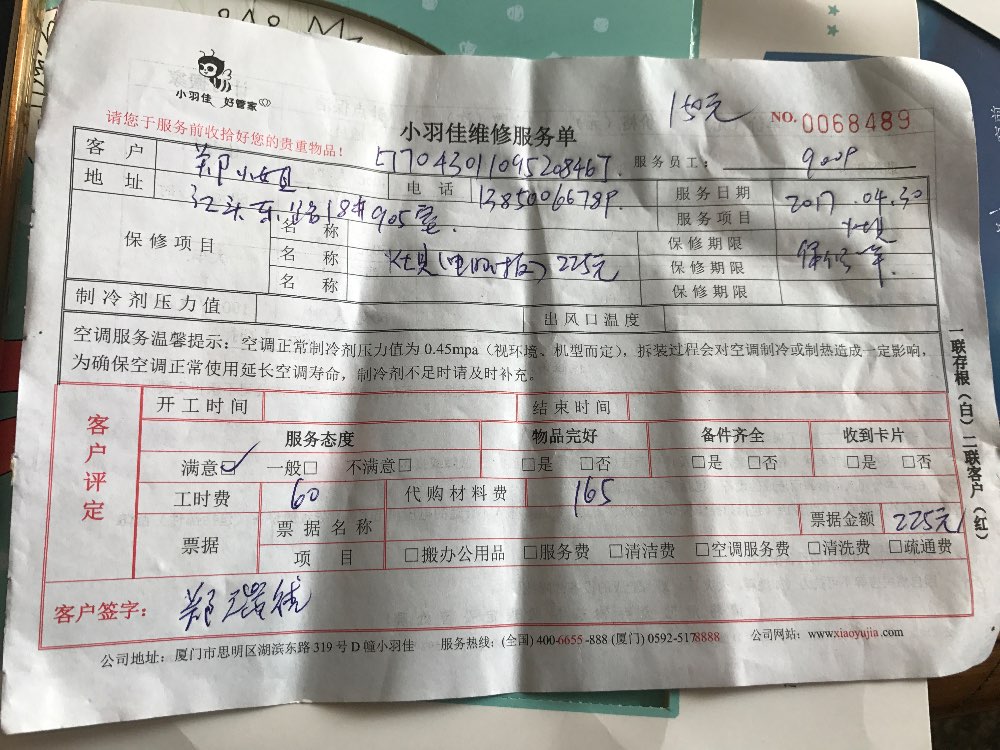 小羽佳 好管家
150元
NO. 0068489
请您于服务前收拾好您的贵重物品！
小羽佳维修服务单
服务员工：
客户 郑小姐
电话 13850066789
服务日期 2017.04.30
地址 江头东路18#905室
服务项目 灶具
保修项目
名称
保修期限 保修一年
名称 灶具(电脑板) 225元
保修期限
名称
保修期限
制冷剂压力值
出风口温度
空调服务温馨提示：空调正常制冷剂压力值为 0.45mpa（视环境、机型而定），拆装过程会对空调制冷或制热造成一定影响，
为确保空调正常使用延长空调寿命，制冷剂不足时请及时补充。
一联存根（白）二联客户（红）
客户评定
开工时间 结束时间
服务态度 物品完好 备件齐全 收到卡片
满意☑ 一般□ 不满意□ □是 □否 □是 □否 □是 □否
工时费 60 代购材料费 165
票据 票据名称 票据金额 225元
项目 □搬办公用品 □服务费 □清洁费 □空调服务费 □清洗费 □疏通费
客户签字：
公司地址：厦门市思明区湖滨东路 319 号 D 幢小羽佳 服务热线：(全国) 400-6655-888 (厦门) 0592-5178888 公司网站：www.xiaoyujia.com